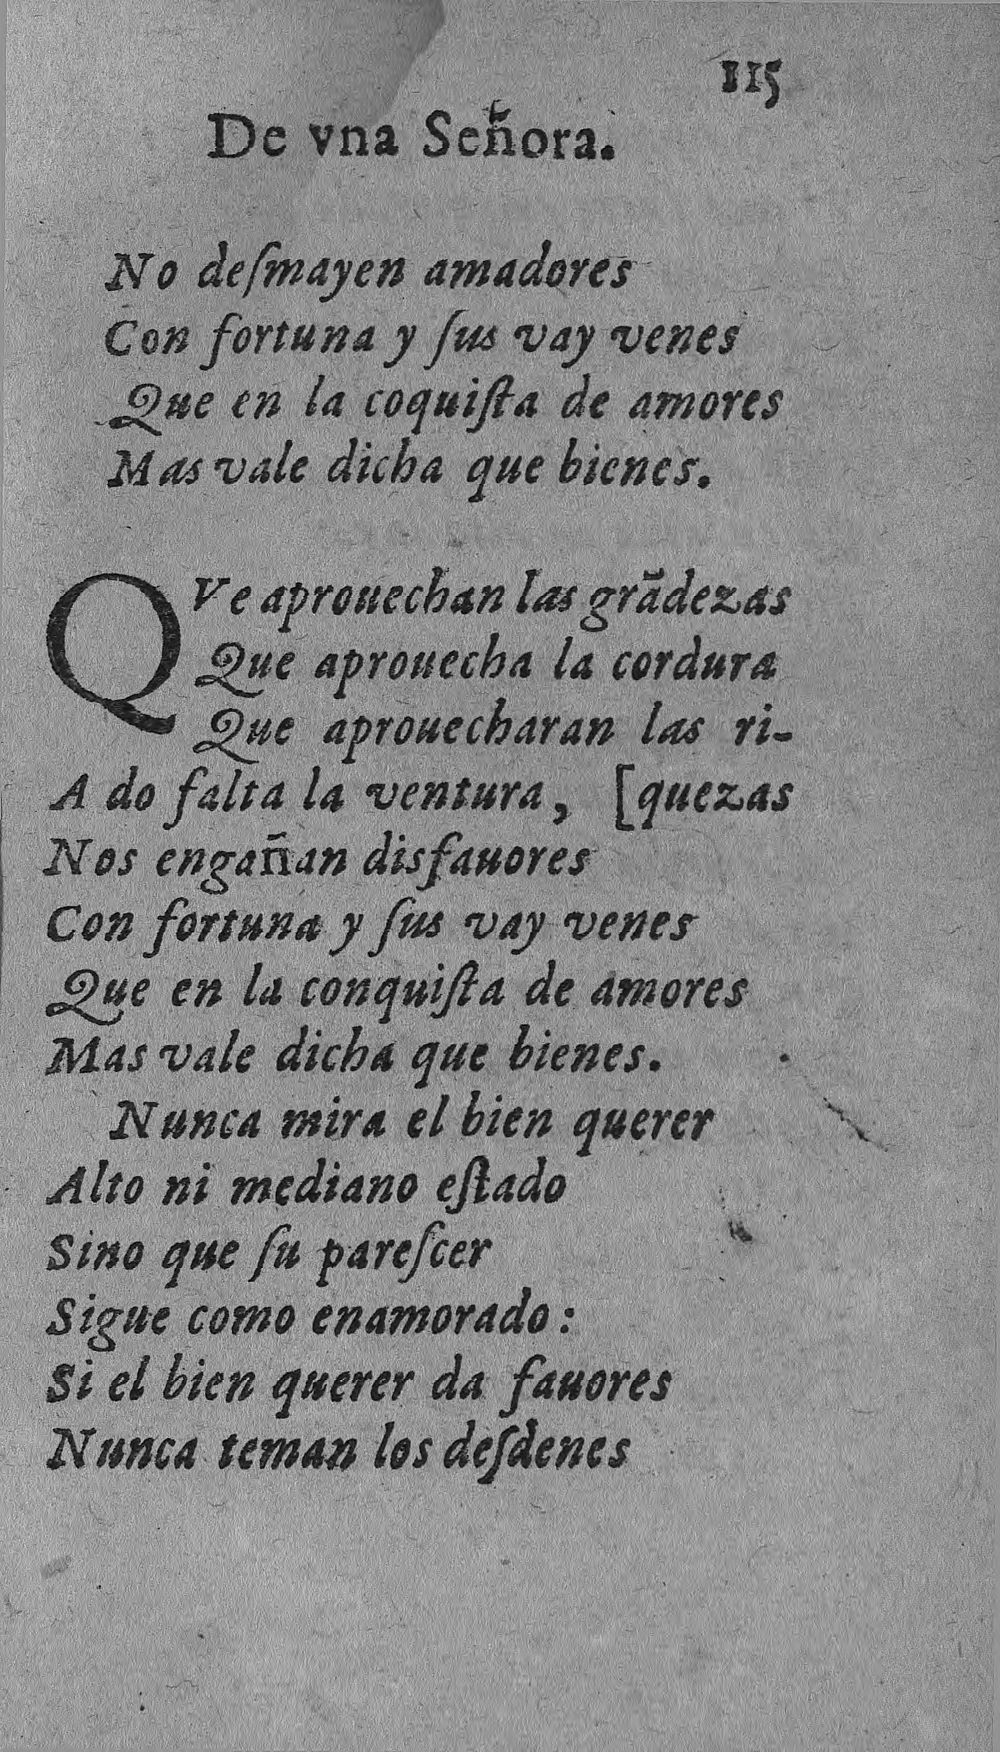 115
De vna Señora.
No deſmayen amadores
Con fortuna y ſus vay venes
Que en la coquiſta de amores
Mas vale dicha que bienes.
QVe aprouechan las grãdezas
Que aprouecha la cordura
Que aprouecharan las ri-
A do falta la ventura, [quezas
Nos engañan disfauores
Con fortuna y ſus vay venes
Que en la conquiſta de amores
Mas vale dicha que bienes.
Nunca mira el bien querer
Alto ni mediano eſtado
Sino que ſu pareſcer
Sigue como enamorado:
Si el bien querer da fauores
Nunca teman los deſdenes